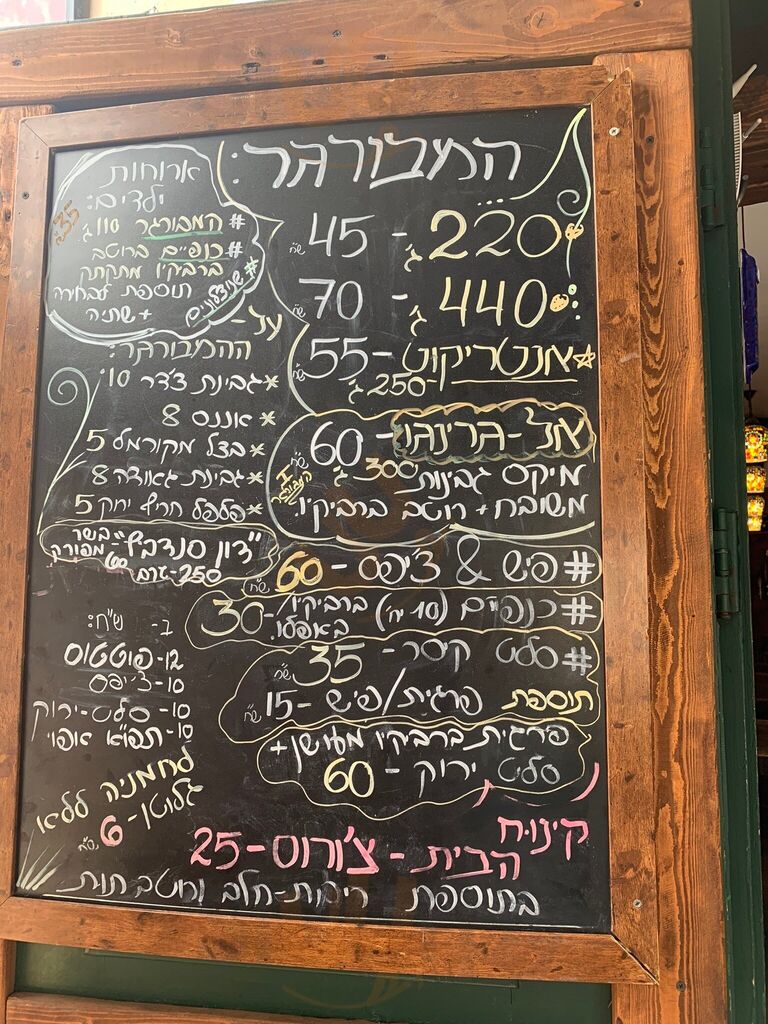 המבורגר:
220 ג' - 45 ש"ח
440 ג' - 70 ש"ח
אנטריקוט - 55 ש"ח
250 ג'
אל-גרינגו - 60 ש"ח
מיקס גבינות 300 ג'
משובח + רוטב ברביקיו.
# פיש & צ'יפס - 60 ש"ח
# כנפיים (10 יח') ברביקיו/ - 30
באפלו.
# סלט קיסר - 35 ש"ח
תוספת פרגית/פיש - 15 ש"ח
פרגית ברביקיו מעושן +
סלט ירוק - 60
קינוח
הבית - צ'ורוס - 25
בתוספת ריבת-חלב ורוטב תות
ארוחות
ילדים:
35 ש"ח
# המבורגר 110 ג'
# כנפיים ברוטב
ברביקיו מתקתק
# שניצלונים
תוספת לבחירה
+ שתיה
על -
ההמבורגר:
* גבינת צ'דר 10
* אננס 8
* בצל מקורמל 5
* גבינת גאודה 8
* פלפל חריף ירוק 5
"דון סנדביץ" בשר מפורק
250 גרם - 60 ש"ח
ב- ש"ח:
12 - פוטטוס
10 - צ'יפס
10 - סלט-ירוק
10 - תפו"א אפוי
לחמניה ללא
גלוטן - 6 ש"ח